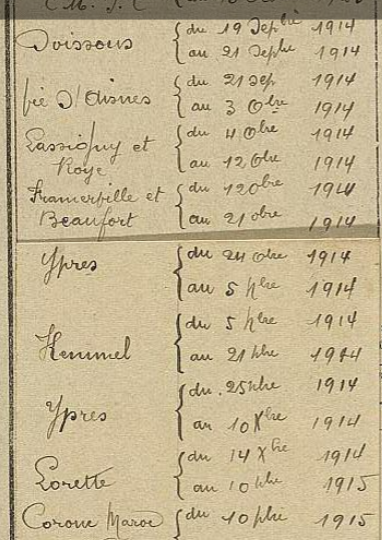 Soissons { du 19 Septbre 1914
au 21 Septbre 1914
fié d'Aisnes { du 21 sep 1914
au 3 Obre 1914
Lassigny et { du 4 Obre 1914
Roye au 12 Obre 1914
Framerville et { du 12 obre 1914
Beaufort au 21 obre 1914
Ypres { du 24 obre 1914
au 5 9bre 1914
Kemmel { du 5 9bre 1914
au 21 9bre 1914
Ypres { du 25 9bre 1914
au 10 Xbre 1914
Lorette { du 14 Xbre 1914
au 10 1915
Corone Maroc { du 10 1915